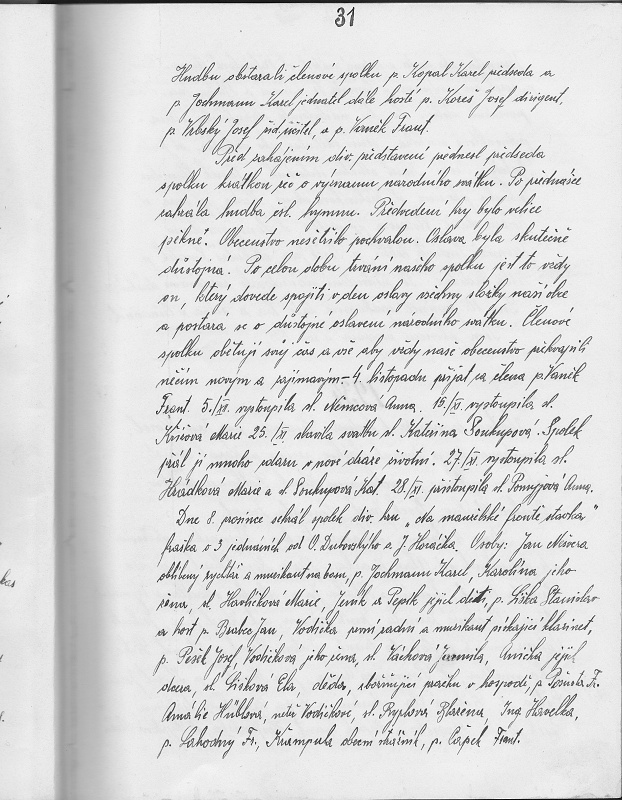 31
Hudbu obstarali členové spolku p. Kopal Karel předseda a
p. Jochmann Karel jednatel dále hosté p. Kareš Josef dirigent,
p. Vrbský Josef říd. učitel, a p. Vaněk Frant.
Před zahájením div. představení přednesl předseda
spolku krátkou řeč o významu národního svátku. Po přednášce
zahrála hudba čsl. hymnu. Předvedení hry bylo velice
pěkné. Obecenstvo nešetřilo pochvalou. Oslava byla skutečně
důstojná. Po celou dobu trvání našeho spolku jest to vždy
on, který dovede spojiti v den oslavy všechny složky naší obce
a postará se o důstojné oslavení národního svátku. Členové
spolku obětují svůj čas a vše aby vždy naše obecenstvo překvapili
něčím novým a zajímavým – 4. listopadu přijat za člena p. Vaněk
Frant. 5./XI. vystoupila sl. Němcová Anna. 15./XI. vystoupila sl.
Marie 25./XI. slavila svatbu sl. Kateřina Soukupová. Spolek
přál jí mnoho zdaru v nové dráze životní. 27./XI. vystoupila sl.
Hrádková Marie a sl. Soukupová Kat. 28./XI. přistoupila sl. Anna.
Dne 8. prosince sehrál spolek div. hru „Na manželské frontě stávka“
fraška o 3 jednáních od O. Dubovského a J. Horáčka. Osoby: Jan Nävera
oblíbený rychtář a muzikant na basu, p. Jochmann Karel, Karolina jeho
žena, sl. Havlíčková Marie, Jeník a Pepík jejich děti, p. Liška Stanislav
a host p. Jan, Vodička první radní a muzikant pískající klarinet,
p. Pešek Josef, Vodičková jeho žena, sl. Váchová Jarmila, Anička jejich
dcera, sl. Lišková Ela, děda, obecní v hospodě, p. Fr.
Amálie Hüblová, neteř Vodičkové, sl. Ryplová Blažena, Ing. Havelka,
p. Lahodný Fr., Krampula obecní strážník, p. Čapek Frant.